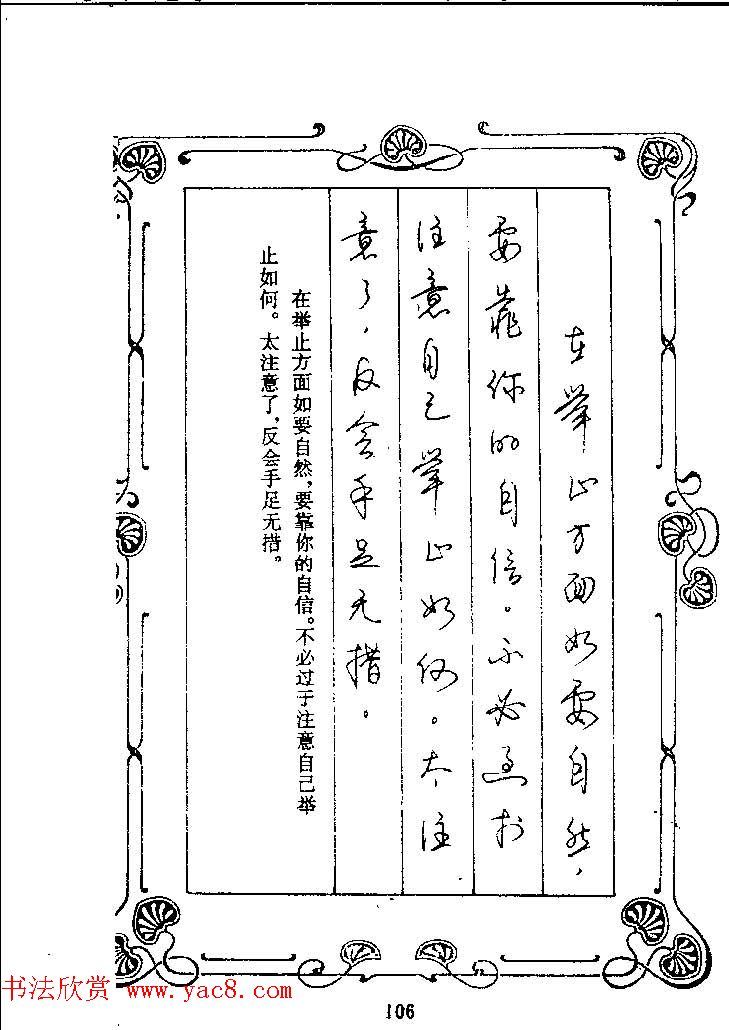 在举止方面如要自然，
要靠你的自信。不必过于
注意自己举止如何。太注
意了，反会手足无措。
在举止方面如要自然，要靠你的自信。不必过于注意自己举
止如何。太注意了，反会手足无措。
书法欣赏 www.yac8.com
106